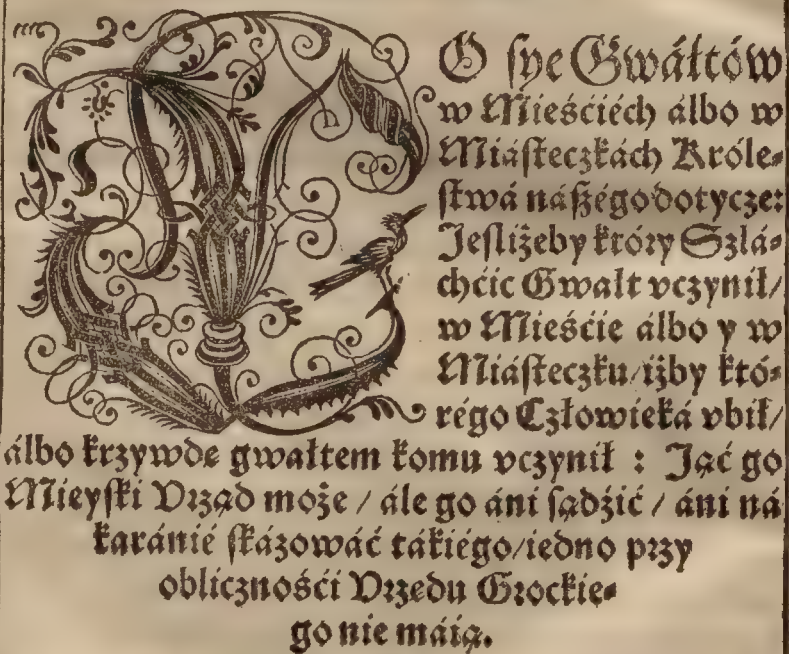 CO ſye Gwáłtów
w Mieśćiéch álbo w
Miáſteczkách Króle⸗
ſtwá náſzégo dotycze:
Jeſliżeby który Szlá⸗
chćic Gwałt vczynił/
w Mieśćie álbo y w
Miáſteczku/iżby któ⸗
régo Człowieká vbił/
álbo krzywdę gwałtem komu vczynił : Jąć go
Mieyſki Vrząd może / ále go áni ſądźić / áni ná
karánié ſkázowáć tákiégo/iedno przy
oblicznośći Vrzędu Grockie⸗
go nie máią.